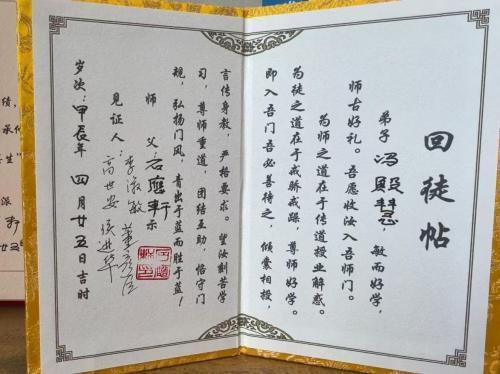 回徒帖
弟子冯殿慧，敏而好学，
师古好礼。吾愿收汝入吾师门。
为师之道在于传道授业解惑。
为徒之道在于戒骄戒躁，尊师好学。
即入吾门吾必善待之，倾囊相授，
言传身教，严格要求。望汝刻苦学
习，尊师重道，团结互助，恪守门
规，弘扬门风，青出于蓝而胜于蓝！
师父 示
见证人：李淑敏
高世安 张进华
岁次：甲辰年 四月廿五日吉时
绩，
派